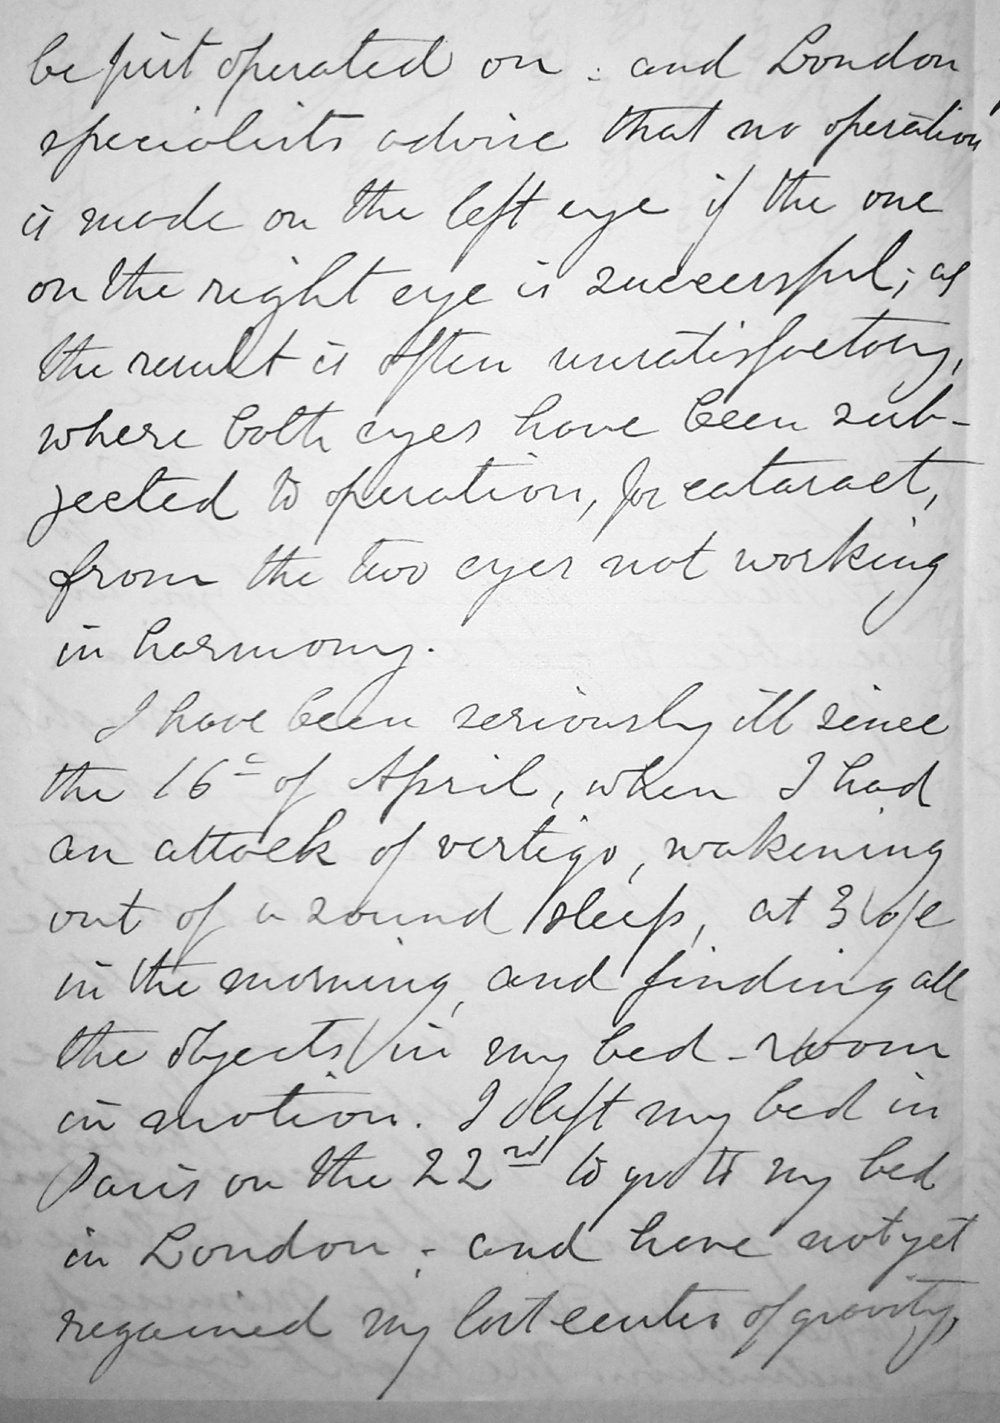 be first operated on : and London,
specialists advise that no operation
is made on the left eye if the one
on the right eye is successful; as
the result is often unsatisfactory,
where both eyes have been sub-
jected to operation, for cataract,
from the two eyes not working
in harmony.
I have been seriously ill since
the 16th of April, when I had
an attack of vertigo, wakening
out of a sound sleep, at 3
in the morning, and finding all
the objects in my bed-room
in motion. I left my bed in
Paris on the 22nd to go to my bed
in London ; and have not yet
regained my lost center of gravity,